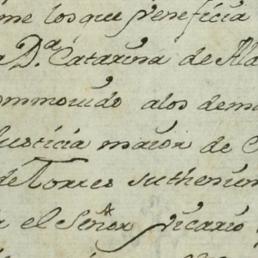 me los que veneficia
Dª Catarina de Ala
ommovido alos dema
Justicia maior de C
de Torres su thenien
el Señor vicario